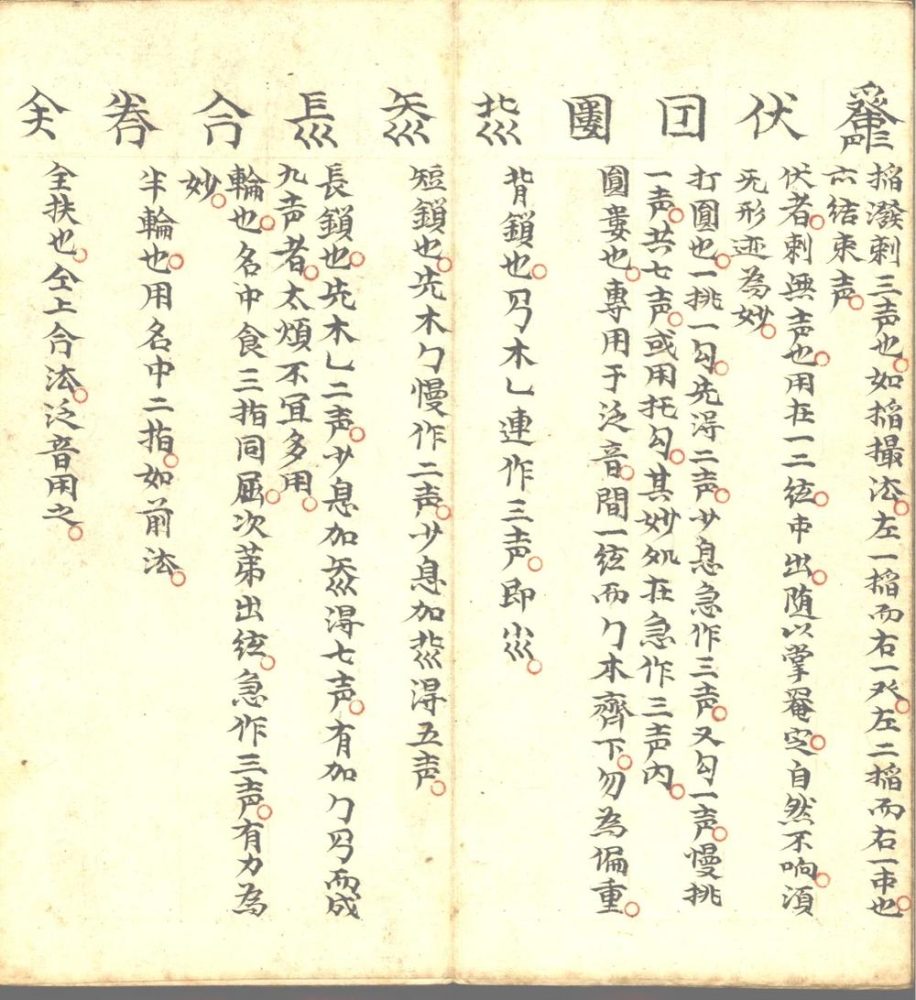 掐潑剌三声也如掐撮法左一掐而右一癶左二掐而右一巿也
亦结束声
伏
伏者剌無声也用在一二弦巿出随以掌罨定自然不响須
无形迹為妙
囘
打圓也一挑一勾先得二声少息急作三声又勾一声慢挑
一声共七声或用托勾其妙処在急作三声内
圓婁也專用于泛音間一弦而勹木齊下勿為偏重
背鎖也丂木乚連作三声即
短鎖也先木勹慢作二声少息加得五声
長鎖也先木乚二声少息加得七声有加勹丂而成
九声者太煩不宜多用
輪也名中食三指同屈次苐出弦急作三声有力為
妙
半輪也用名中二指如前法
全扶也仝上合法泛音用之